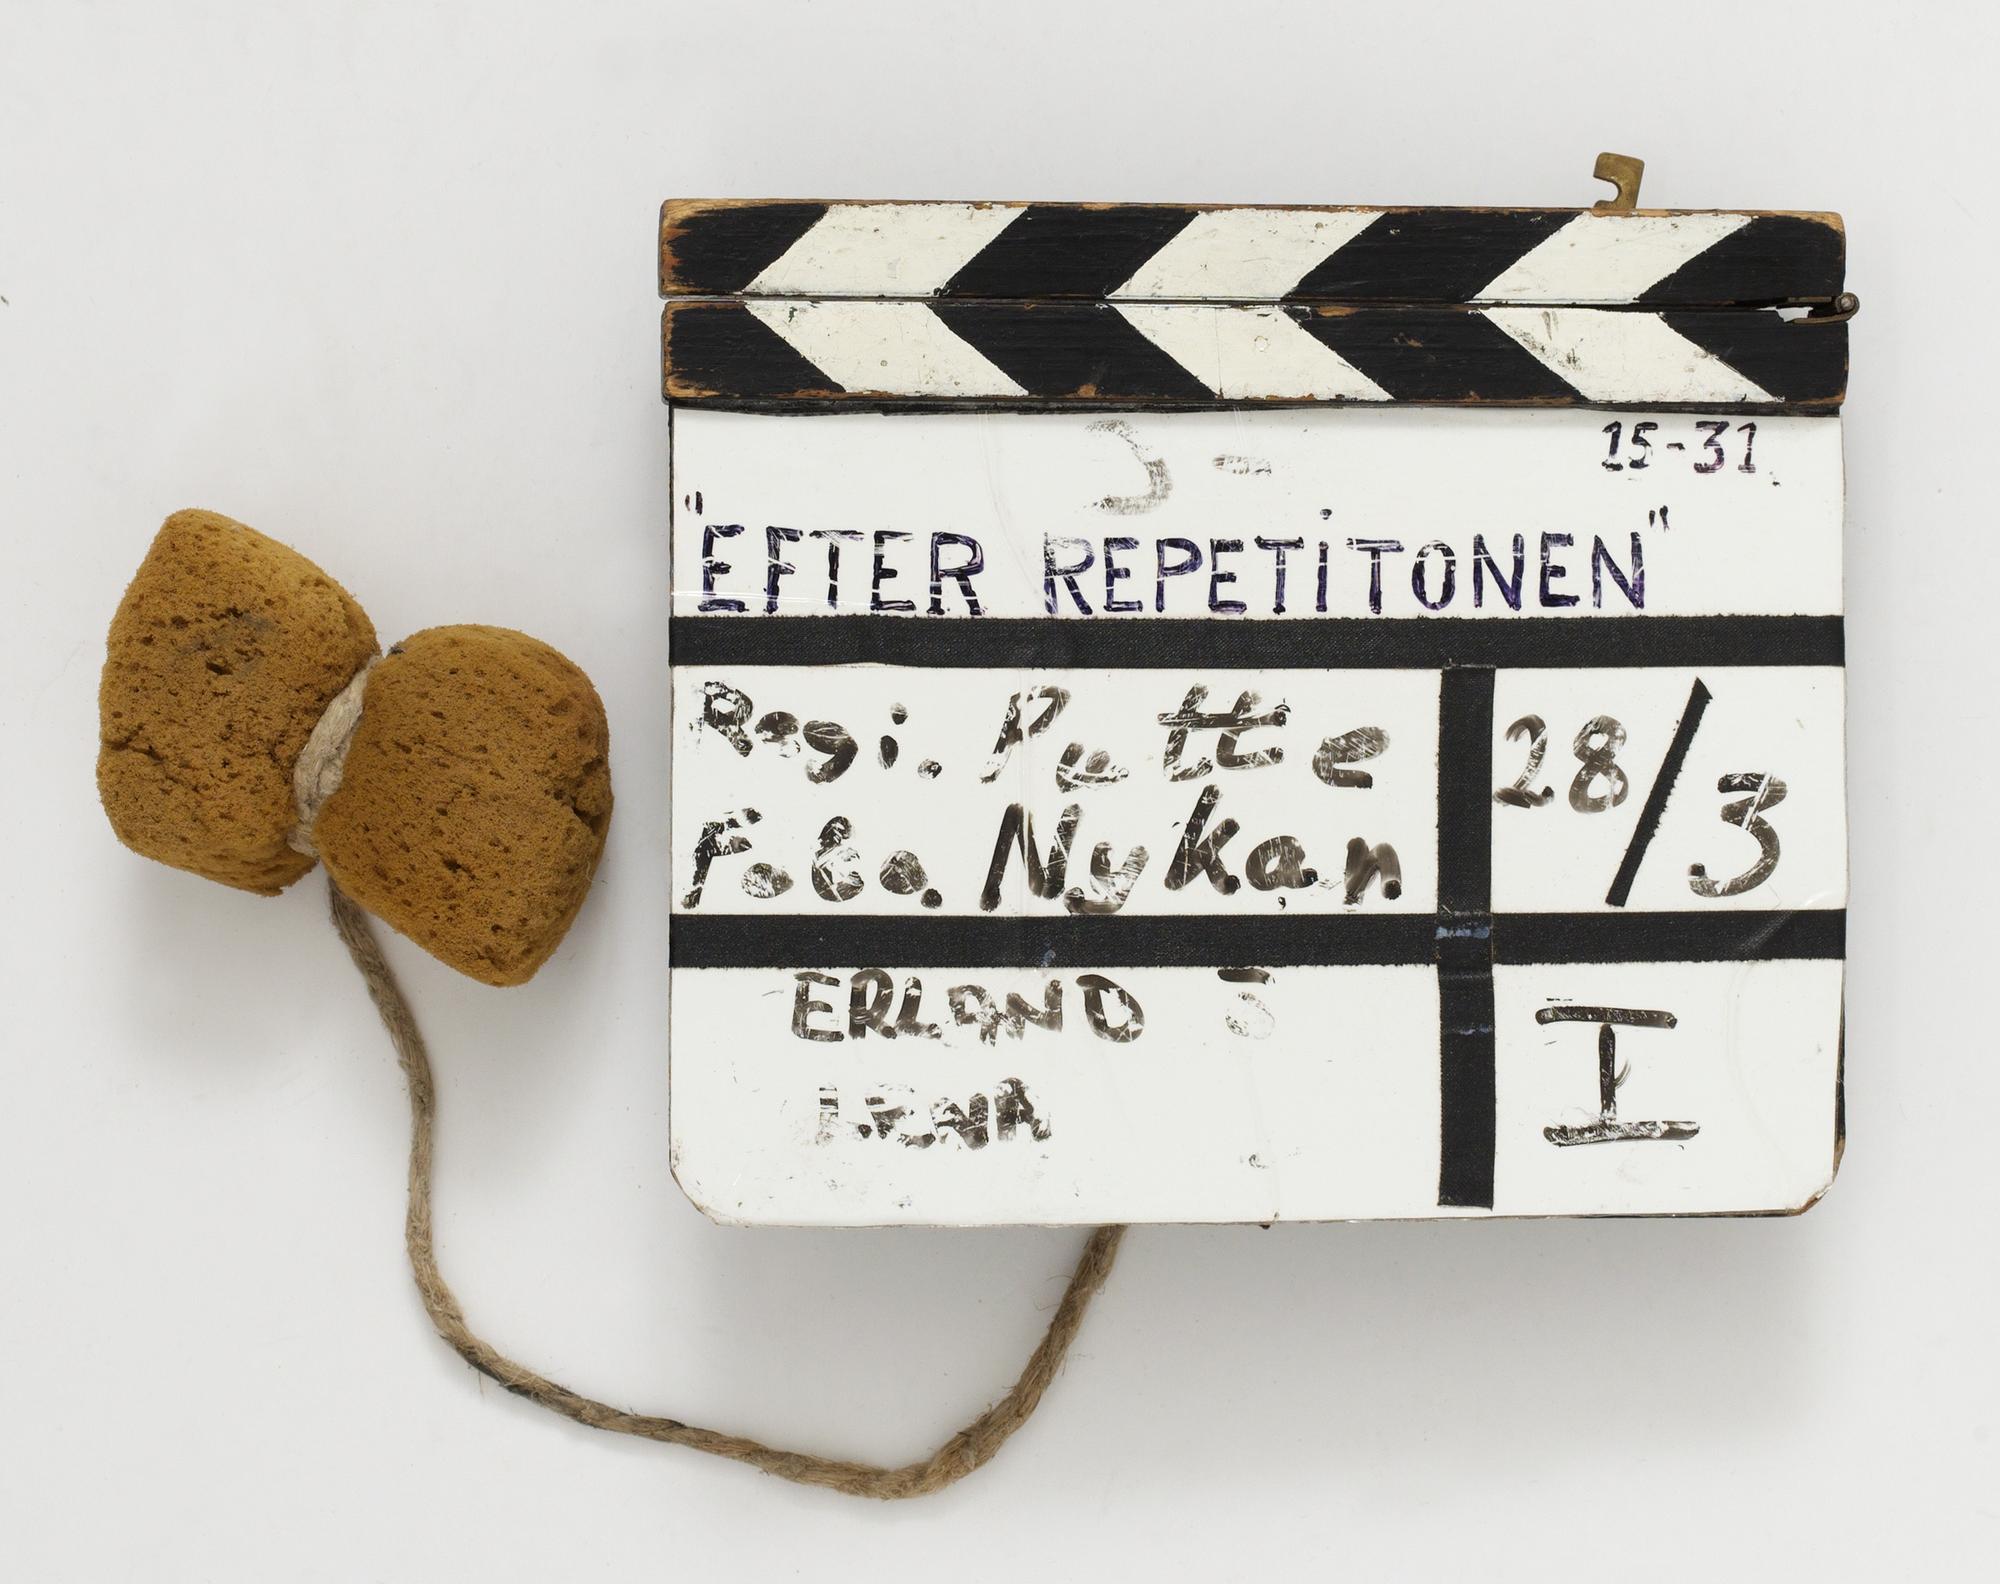 15-31
"EFTER REPETiTONEN"
Regi. Putte
Foto. Nykan
28/3
ERLAND
LENA
I